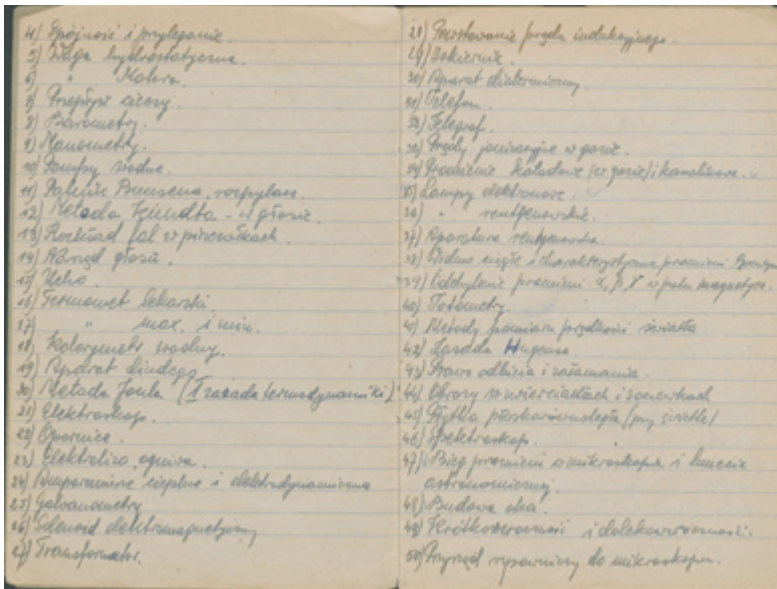 4) Spójność i przyleganie.
5) Waga hydrostatyczna.
6) " Mohra.
7) Przepływ cieczy.
8) Barometry.
9) Manometry.
10) Pompy wodne.
11) Palnik Bunsena, rozpylacz.
12) Metoda Kundta - w głosie.
13) Rozkład fal w piszczałkach.
14) Narząd głosu.
15) Ucho.
16) Termometr lekarski
17) " max. i min.
18) Kolorymetr wodny.
19) Aparat Lindego
20) Metoda Joula (I zasada termodynamiki)
21) Elektroskop.
22) Opornice.
23) Elektroliza, ogniwa.
24) Amperomierze cieplne i elektrodynamiczne
25) Galvanometry
26) Solenoid elektromagnetyczny
27) Transformator.
28) Powstawanie prądu indukcyjnego.
29) Iskiernik.
30) Aparat diatermiczny.
31) Telefon.
32) Telegraf.
33) Prądy jonizacyjne w gazie.
34) Promienie katodowe (w gazie) i kanalikowe.
35) Lampy elektronowe.
36) " rentgenowskie.
37) Aparatura rentgenowska.
38) Widmo ciągłe i charakterystyczne promieni
39) Odchylenie promieni α, β, γ w polu magnetycz.
40) Fotometry.
41) Metody pomiaru prędkości światła
42) Zasada Hugensa.
43) Prawo odbicia i załamania.
44) Obrazy w zwierciadłach i soczewkach
45) Płytka płaskorównoległa
46) Spektroskop.
47) Bieg promieni w mikroskopie i lunecie
astronomicznej.
48) Budowa oka.
49) Krótkowzroczność i dalekowzroczność.
50) Przyrząd rysowniczy do mikroskopu.